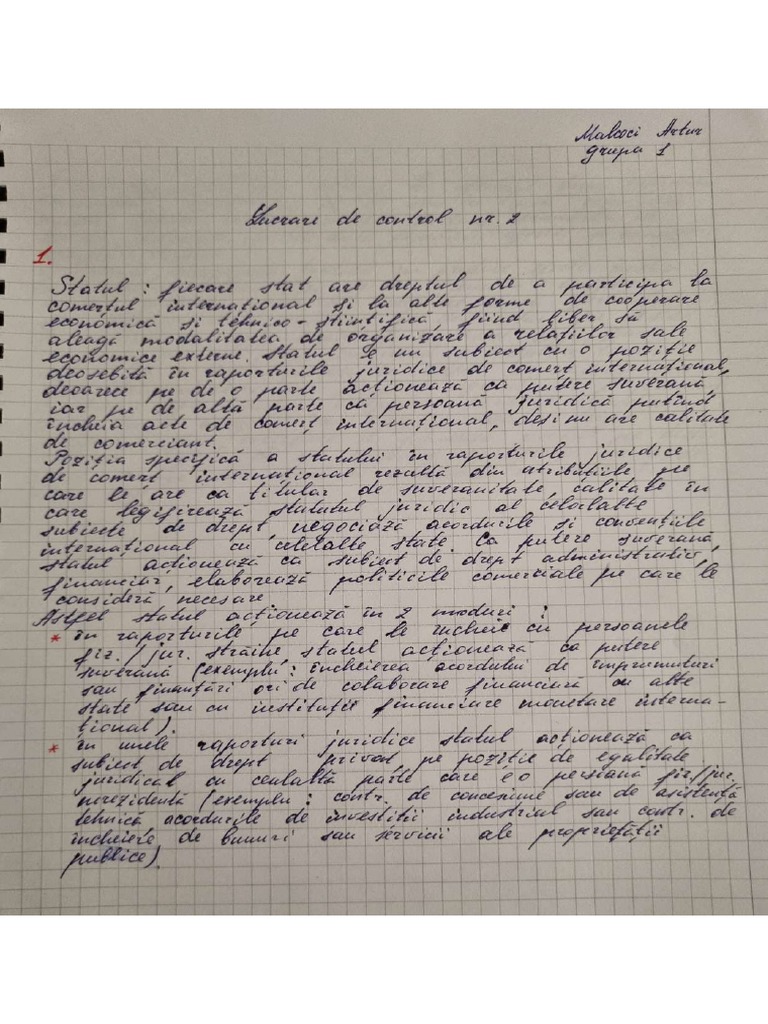 Malcoci Artur
grupa 1
Lucrare de control nr. 2
1.
Statul : fiecare stat are dreptul de a participa la
comerțul internațional și la alte forme de cooperare
economică și tehnico-științifică, fiind liber să
aleagă modalitatea de organizare a relațiilor sale
economice externe. Statul e un subiect cu o poziție
deosebită în raporturile juridice de comerț internațional,
deoarece pe de o parte acționează ca putere suverană,
iar pe de altă parte ca persoană juridică putînd
încheia acte de comerț internațional, deși nu are calitate
de comerciant.
Poziția specifică a statului în raporturile juridice
de comerț internațional rezultă din atribuțiile pe
care le are ca titular de suveranitate, calitate în
care legiferează statutul juridic al celorlalte
subiecte de drept, negociază acordurile și convențiile
internațional cu celelalte state. Ca putere suverană,
statul acționează ca subiect de drept administrativ,
financiar, elaborează politicile comerciale pe care le
consideră necesare
Astfel statul acționează în 2 moduri :
* în raporturile pe care le încheie cu persoanele
fiz./jur. străine statul acționează ca putere
suverană (exemplu: încheierea acordului de împrumuturi
sau finanțări ori de colaborare financiară cu alte
state sau cu instituții financiare monetare interna-
țional).
* în unele raporturi juridice statul acționează ca
subiect de drept privat, pe poziție de egalitate
juridical cu cealaltă parte care e o persoană fiz./jur.
nerezidentă (exemplu : contr. de concesiune sau de asistență
tehnică acordurile de investiții industrial sau contr. de
încheiere de bunuri sau servicii ale proprietății
publice).